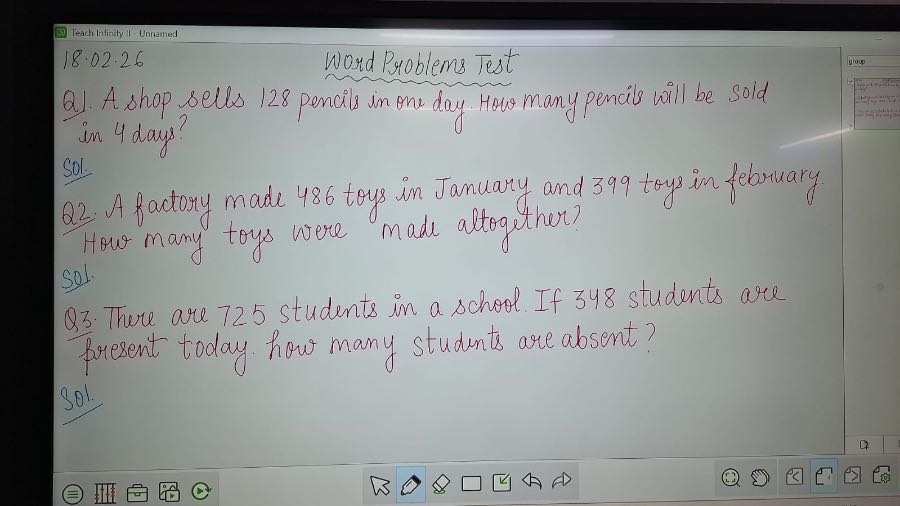 Teach Infinity II - Unnamed
18.02.26
Word Problems Test
group
Q1. A shop sells 128 pencils in one day. How many pencils will be sold
in 4 days?
Sol.
Q2. A factory made 486 toys in January and 399 toys in february.
How many toys were made altogether?
Sol.
Q3. There are 725 students in a school. If 348 students are
present today. how many students are absent?
Sol.